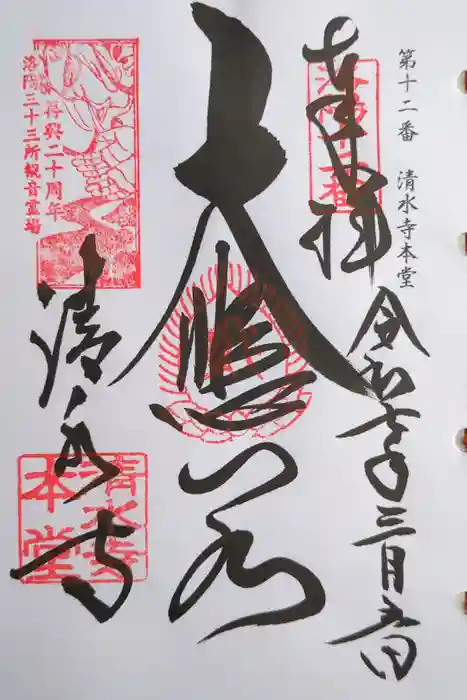 第十二番 清水寺本堂
奉拝
洛陽十二番
令和七年三月五日
大悲閣
再興二十周年
洛陽三十三所観音霊場
清水寺
清水寺
本堂